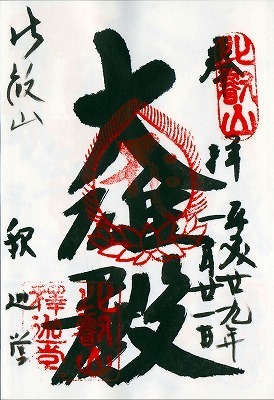 奉拝
平成廿九年
一月廿一日
大雄殿
比叡山
釈迦堂
比叡山
比叡山
釋迦堂